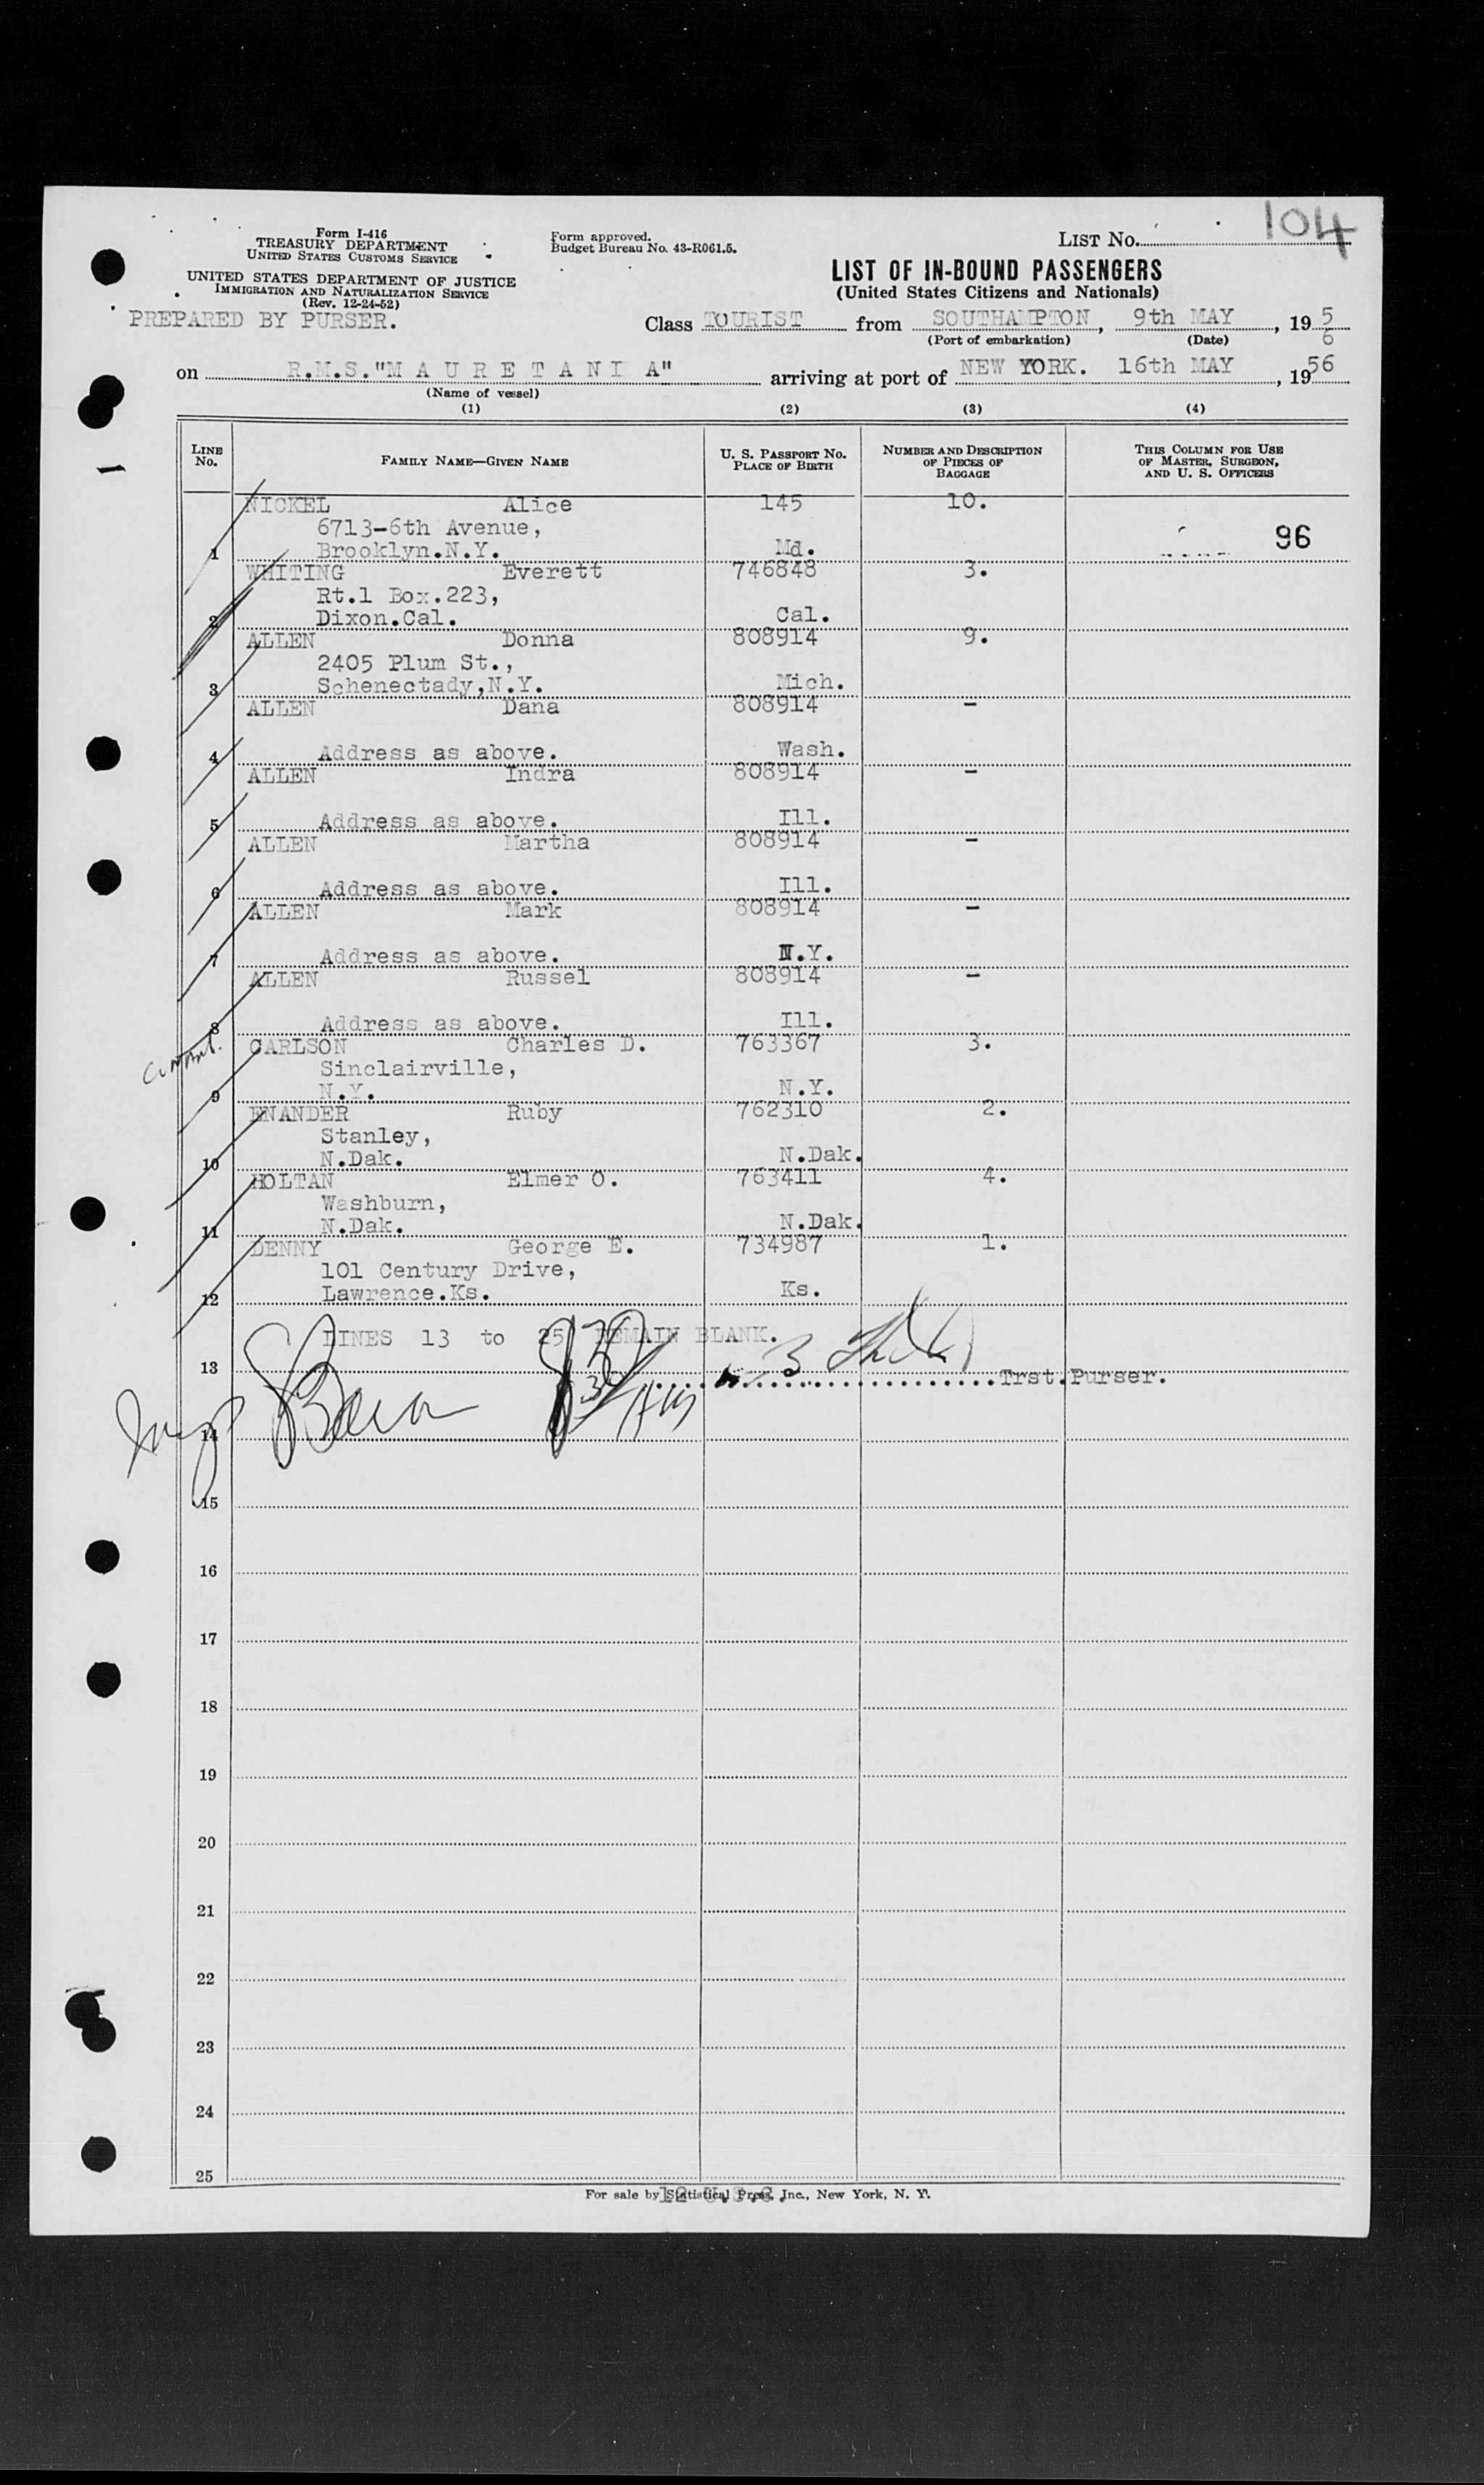 104
Form I-416
TREASURY DEPARTMENT
UNITED STATES CUSTOMS SERVICE
Form approved.
Budget Bureau No. 43-R061.5.
LIST NO.
UNITED STATES DEPARTMENT OF JUSTICE
IMMIGRATION AND NATURALIZATION SERVICE
(Rev. 12-24-52)
PREPARED BY PURSER.
LIST OF IN-BOUND PASSENGERS
(United States Citizens and Nationals)
Class TOURIST from SOUTHAMPTON, 9th MAY, 19 5
6
(Port of embarkation) (Date)
on R.M.S."M A U R E T A N I A" arriving at port of NEW YORK. 16th MAY, 19 56
(Name of vessel)
(1) (2) (3) (4)
LINE NO. FAMILY NAME—GIVEN NAME U. S. PASSPORT NO. PLACE OF BIRTH NUMBER AND DESCRIPTION OF PIECES OF BAGGAGE THIS COLUMN FOR USE OF MASTER, SURGEON, AND U. S. OFFICERS
NICKEL Alice 145 10.
6713-6th Avenue,
1 Brooklyn.N.Y. Md. 96
WHITING Everett 746848 3.
Rt.1 Box.223,
2 Dixon.Cal. Cal.
ALLEN Donna 808914 9.
2405 Plum St.,
3 Schenectady,N.Y. Mich.
ALLEN Dana 808914 -
4 Address as above. Wash.
ALLEN Indra 808914 -
5 Address as above. Ill.
ALLEN Martha 808914 -
6 Address as above. Ill.
ALLEN Mark 808914 -
7 Address as above. N.Y.
ALLEN Russel 808914 -
8 Address as above. Ill.
CARLSON Charles D. 763367 3.
Sinclairville,
9 N.Y. N.Y.
ENANDER Ruby 762310 2.
Stanley,
10 N.Dak. N.Dak.
HOLTAN Elmer O. 763411 4.
Washburn,
11 N.Dak. N.Dak.
DENNY George E. 734987 1.
101 Century Drive,
12 Lawrence.Ks. Ks.
LINES 13 to 25 REMAIN BLANK.
13 Trst.Purser.
14
15
16
17
18
19
20
21
22
23
24
25
For sale by Statistical Press, Inc., New York, N. Y.